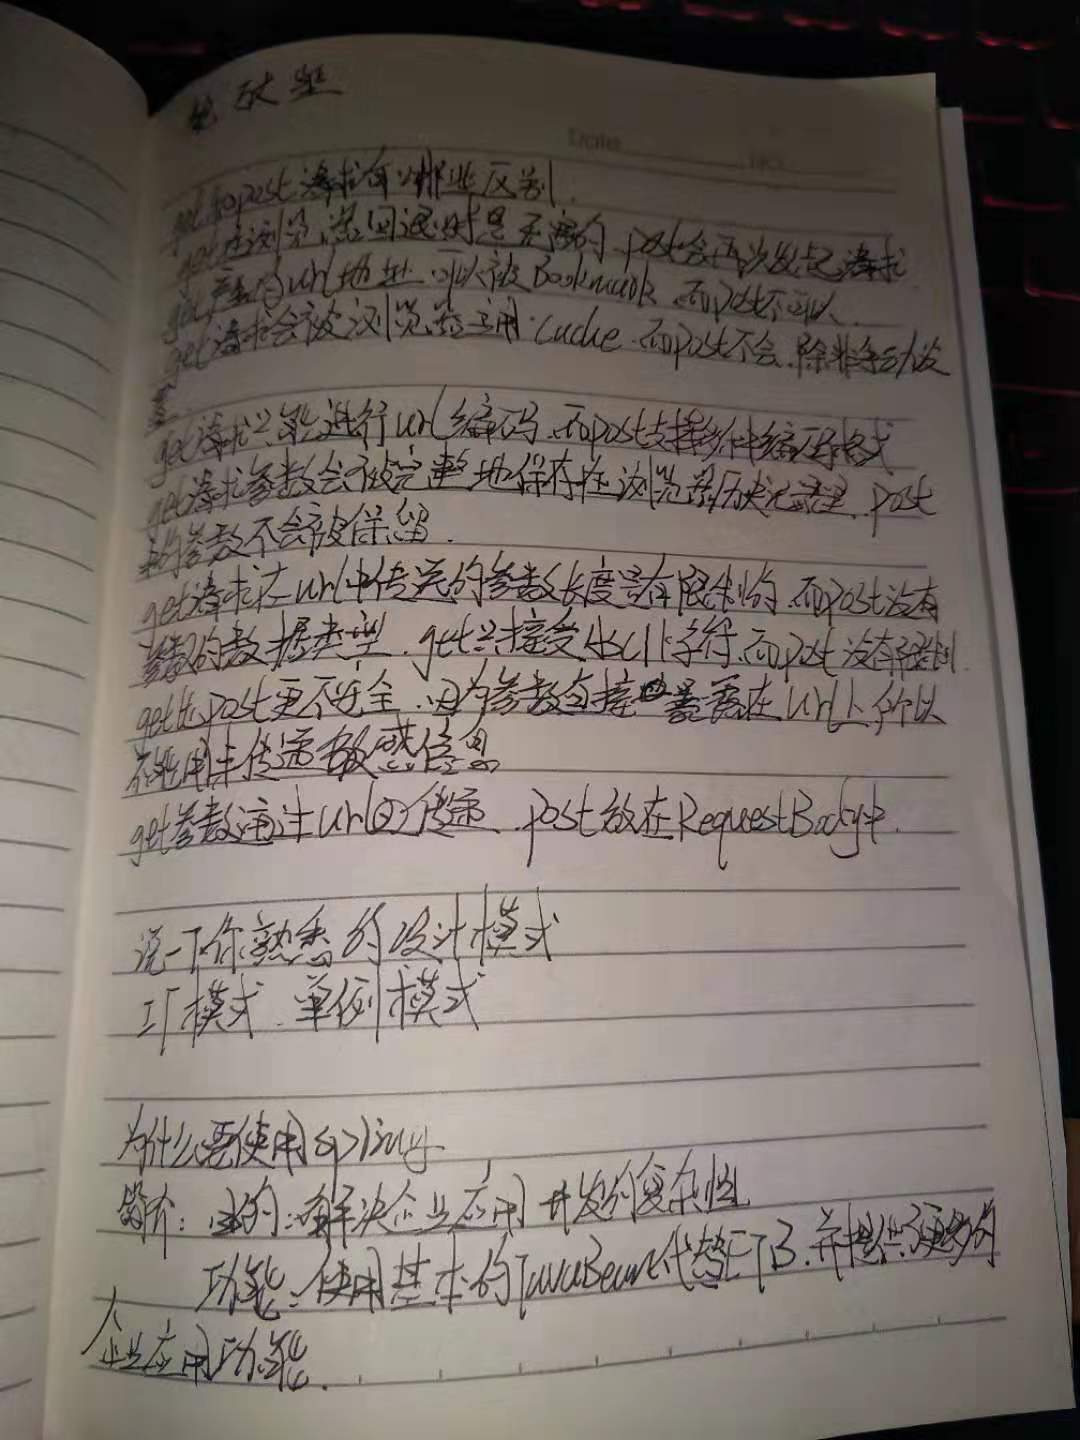 Date
NO.
get和post请求有哪些区别.
get在浏览器回退时是无害的 post会再次发起请求
get产生的url地址 可以被Bookmark 而post不可以.
get请求会被浏览器主用cache.而post不会.除非手动设
置
get请求只能进行url编码.而post支持多种编码格式
get请求参数会被完整地保存在浏览器历史记录里. post
中的参数不会被保留.
get请求在url中传送的参数长度是有限制的.而post没有
参数的数据类型.get只接受ascll字符.而post没有限制.
get比post更不安全.因为参数直接暴露在url上所以
不能用来传递敏感信息
get参数通过url传递. post放在RequestBody中.
说一下你熟悉的设计模式
工厂模式.单例模式
为什么要使用spring
简介:目的:解决企业应用开发的复杂性
功能:使用基本的JavaBean代替EJB.并提供了更多的
企业应用功能.